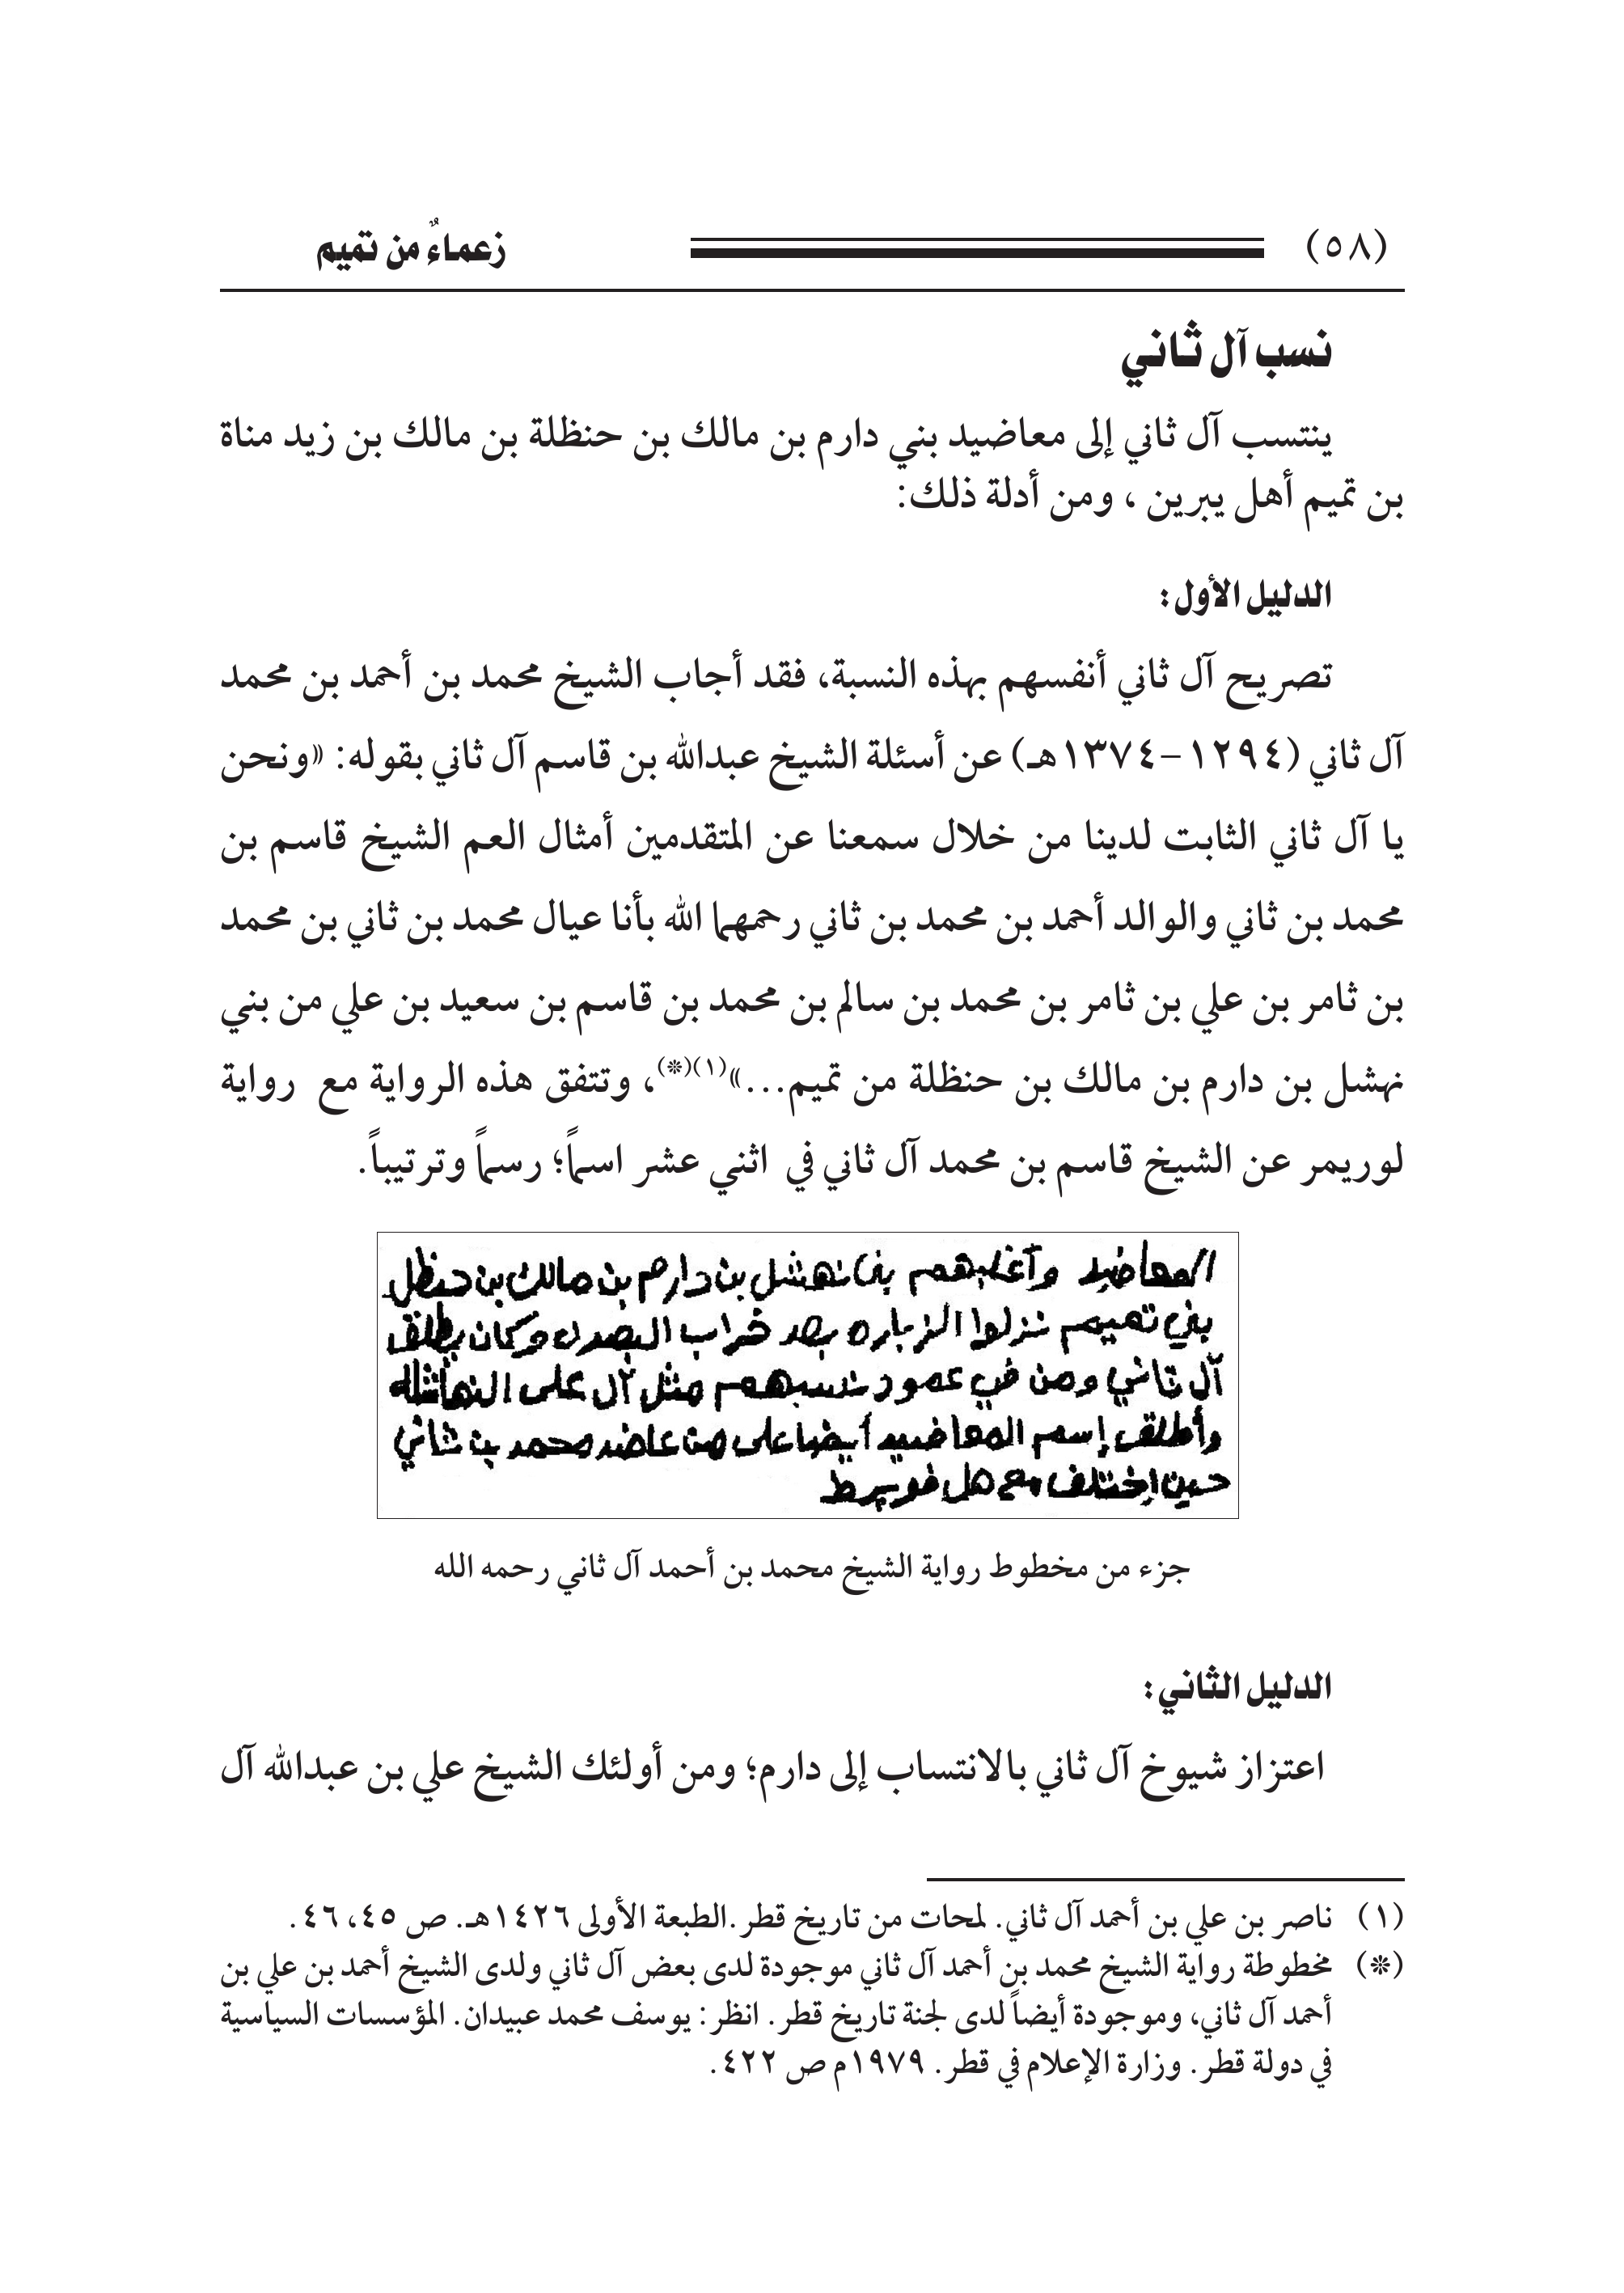 (٥٨) زعماءٌ من تميم
نسب آل ثاني
ينتسب آل ثاني إلى معاضيد بني دارم بن مالك بن حنظلة بن مالك بن زيد مناة
بن تميم أهل يبرين ، ومن أدلة ذلك:
الدليل الأول:
تصريح آل ثاني أنفسهم بهذه النسبة، فقد أجاب الشيخ محمد بن أحمد بن محمد
آل ثاني (١٢٩٤-١٣٧٤هـ) عن أسئلة الشيخ عبدالله بن قاسم آل ثاني بقوله: «ونحن
يا آل ثاني الثابت لدينا من خلال سمعنا عن المتقدمين أمثال العم الشيخ قاسم بن
محمد بن ثاني والوالد أحمد بن محمد بن ثاني رحمهما الله بأنا عيال محمد بن ثاني بن محمد
بن ثامر بن علي بن ثامر بن محمد بن سالم بن محمد بن قاسم بن سعيد بن علي من بني
نهشل بن دارم بن مالك بن حنظلة من تميم...»(١)(*)، وتتفق هذه الرواية مع رواية
لوريمر عن الشيخ قاسم بن محمد آل ثاني في اثني عشر اسماً؛ رسماً وترتيباً.
المعاضيد وآغلبهم بني نهشل بن دارم بن مالك بن حنظل
بني تميم نزلوا الزباره بعد خراب البصره وكان يطلق
آل ثاني ومن في عمود نسبهم مثل آل على النهاشله
وأطلق إسم المعاضيد أيضا على من عاضد محمد بن ثاني
حين اختلف مع هل فويرط
جزء من مخطوط رواية الشيخ محمد بن أحمد آل ثاني رحمه الله
الدليل الثاني:
اعتزاز شيوخ آل ثاني بالانتساب إلى دارم؛ ومن أولئك الشيخ علي بن عبدالله آل
(١) ناصر بن علي بن أحمد آل ثاني. لمحات من تاريخ قطر.الطبعة الأولى ١٤٢٦هـ. ص ٤٥، ٤٦.
(*) مخطوطة رواية الشيخ محمد بن أحمد آل ثاني موجودة لدى بعض آل ثاني ولدى الشيخ أحمد بن علي بن
أحمد آل ثاني، وموجودة أيضاً لدى لجنة تاريخ قطر. انظر: يوسف محمد عبيدان. المؤسسات السياسية
في دولة قطر. وزارة الإعلام في قطر. ١٩٧٩م ص ٤٢٢.